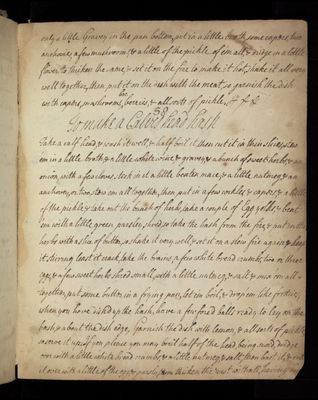 only a little Gravey in the pan bottom, put in a little broth some capers, two
anchovies a few mushrooms, & a little of the pickle of em all & dridge in a little
flower to thicken the same, & set it on the fire to make it hot, shake it all very
well together, then put it on the dish with the meat, so garnish the dish
with capers, mushrooms, berries, & all sorts of pickle. &c &c
To make a Calves head hash
Take a calf head, & wash it well, & half boil it then cut it in thin slices, stew
em in a little broth, & a little white wine, & gravey, & a bunch of sweet herbs, an
onion, with a few cloves stuck in it a little beaten mace, & a little nutmeg & an
anchovy or two stew em all together, then put in a few cockles, & capers, & a little
of the pickle, take out the bunch of herbs, take a couple of Egg yolks, & beat
em with a little green parsley shred, so take the hash from the fire, & put in the
herbs with a slice of butter, so shake it very well, & set it on a slow fire again, & keep
it stirring least it crack, take the brains, a few white bread crumbs, two or three
eggs, & a few sweet herbs shred small, with a little nutmeg, & salt & mix em all
together, put some butter in a frying pan, let em boil, & drop em like fritters,
when you have dish'd up the hash, have a few forcd balls ready to lay on the
hash, & about the dish edge, Garnish the dish with lemon, & all sorts of pickle
so serve it up; if you please you may boil half of the head, being whole, dridge
over with a little white bread crumbs & a little nutmeg, & salt, then
it over with a little of the egg & parsly, from thicken the rest with all,